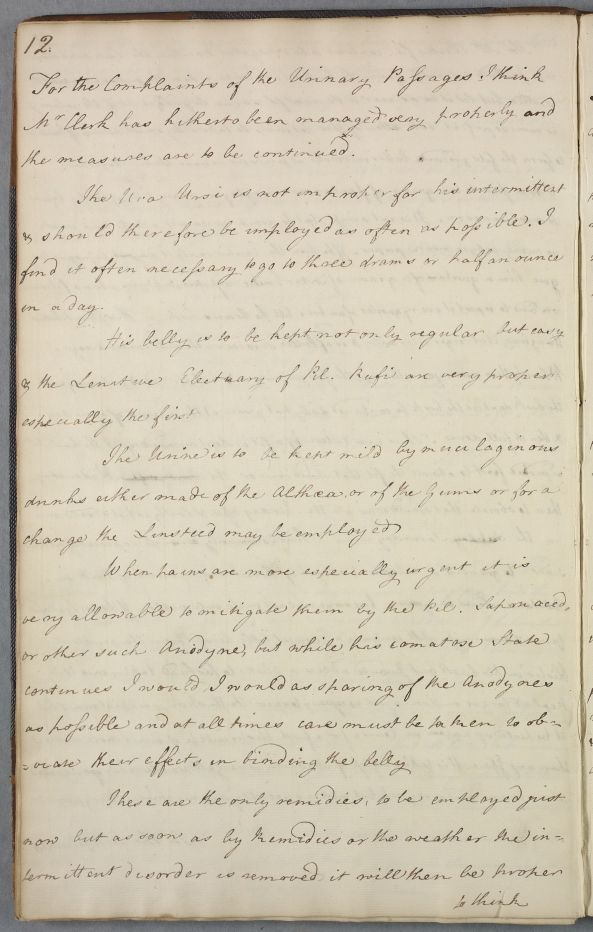 12.
For the Complaints of the Urinary Passages I think
Mr Clerk has hitherto been managed very properly and
the measures are to be continued.
The Uva Ursi is not improper for his intermittent
& should therefore be employed as often as possible. I
find it often necessary to go to three drams or half an ounce
in a day.
His belly is to be kept not only regular but easy
& the Lenitive Electuary of Pil. Rufi are very proper
especially the first
The Urine is to be kept mild by mucilaginous
drinks either made of the Althæa, or of the Gums or for a
change the Linsteed may be employed
When pains are more especially urgent it is
very allowable to mitigate them by the Pil. Sapon aced,
or other such Anodyne, but while his comatose State
continues I would I would as sparing of the Anodynes
as possible and at all times care must be taken to ob=
=viate their effects in binding the belly
These are the only remidies, to be employed just
now but as soon as by Remidies or the weather the in=
termittent disorder is removed it will then be proper
to think